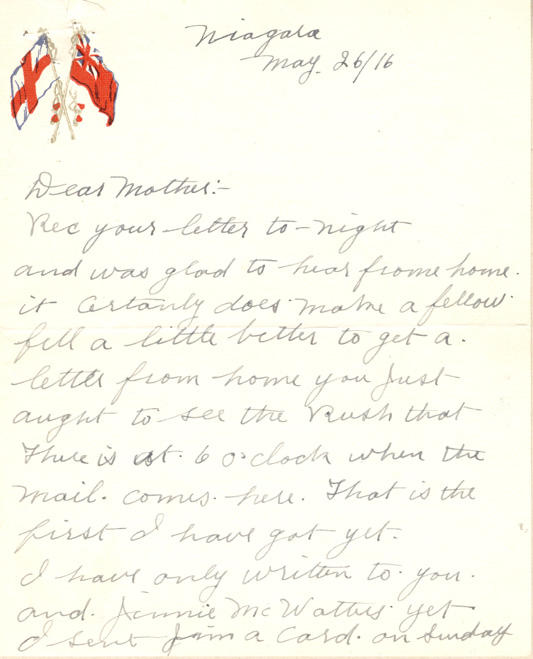 Niagara
May. 26/16
Dear Mother:-
Rec your letter to-night
and was glad to hear frome home.
it certanly does make a fellow
fell a little better to get a.
letter from home you just
aught to see the Rush that
There is at. 6 o'clock when the
mail. comes. here. That is the
first I have got yet.
I have only written to. you.
and. Jinnie McWatters yet
I sent Jim a Card. on Sunday